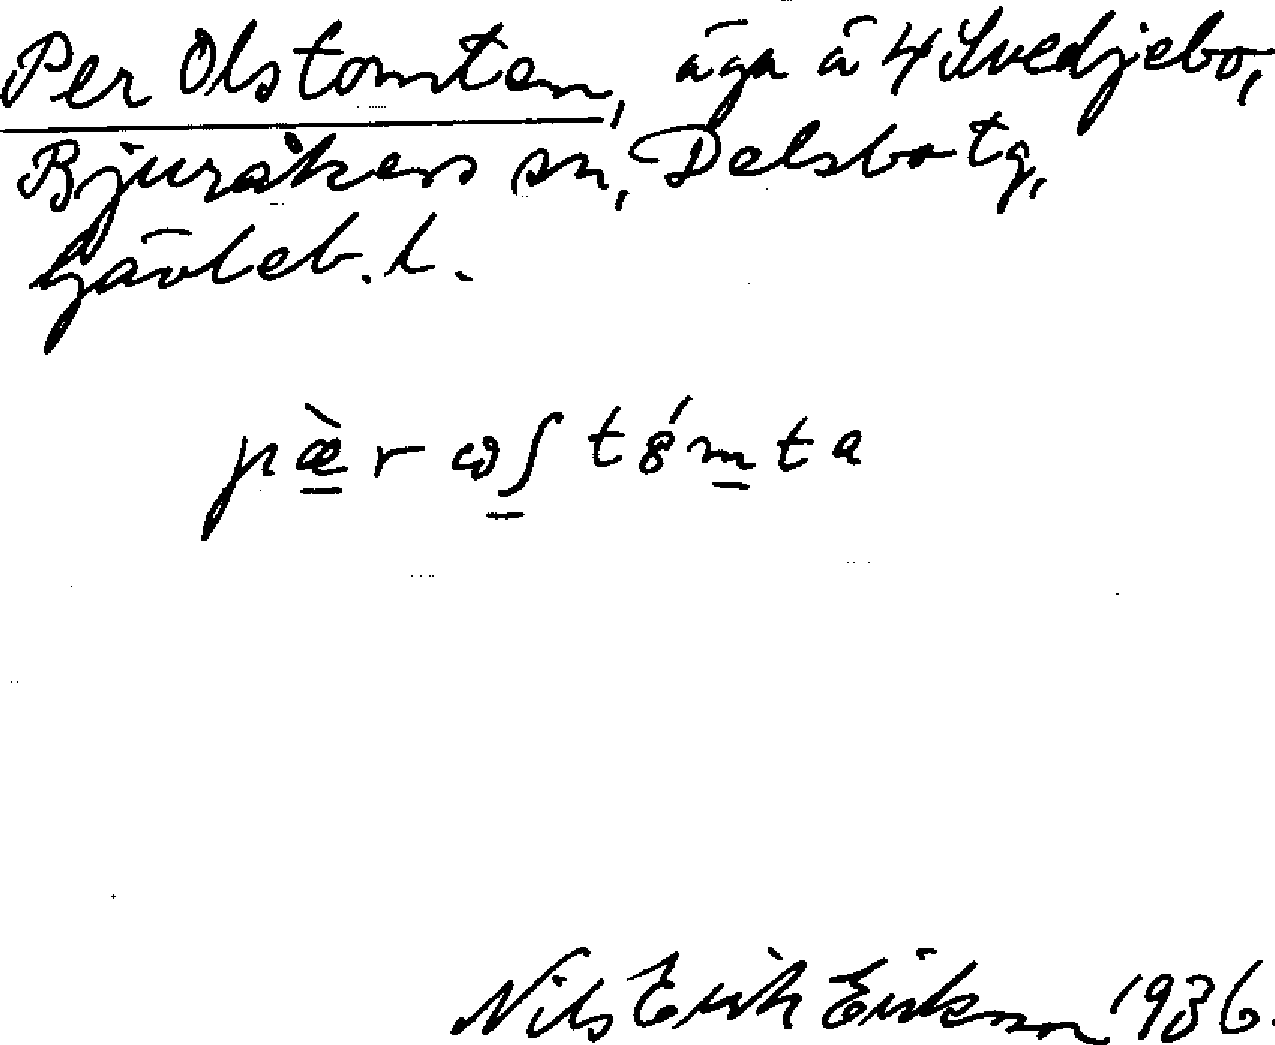 Per Olstomten, äga å 4 Svedjebo,
Bjuråkers sn, Delsbo tg,
Gävleb. l.
pæ̀r ωʃ tȣ́mta
Nils Erik Eriksson 1936.